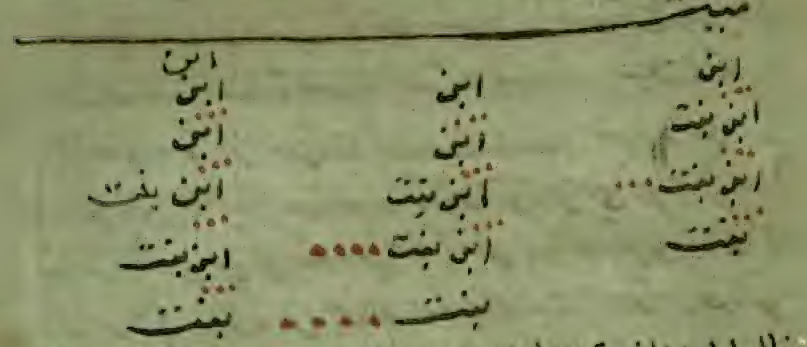 ميت
ابن
ابن ابن ابن
ابن بنت ابن ابن
ابن بنت ابن بنت ابن بنت
بنت ابن بنت ابن بنت
بنت بنت